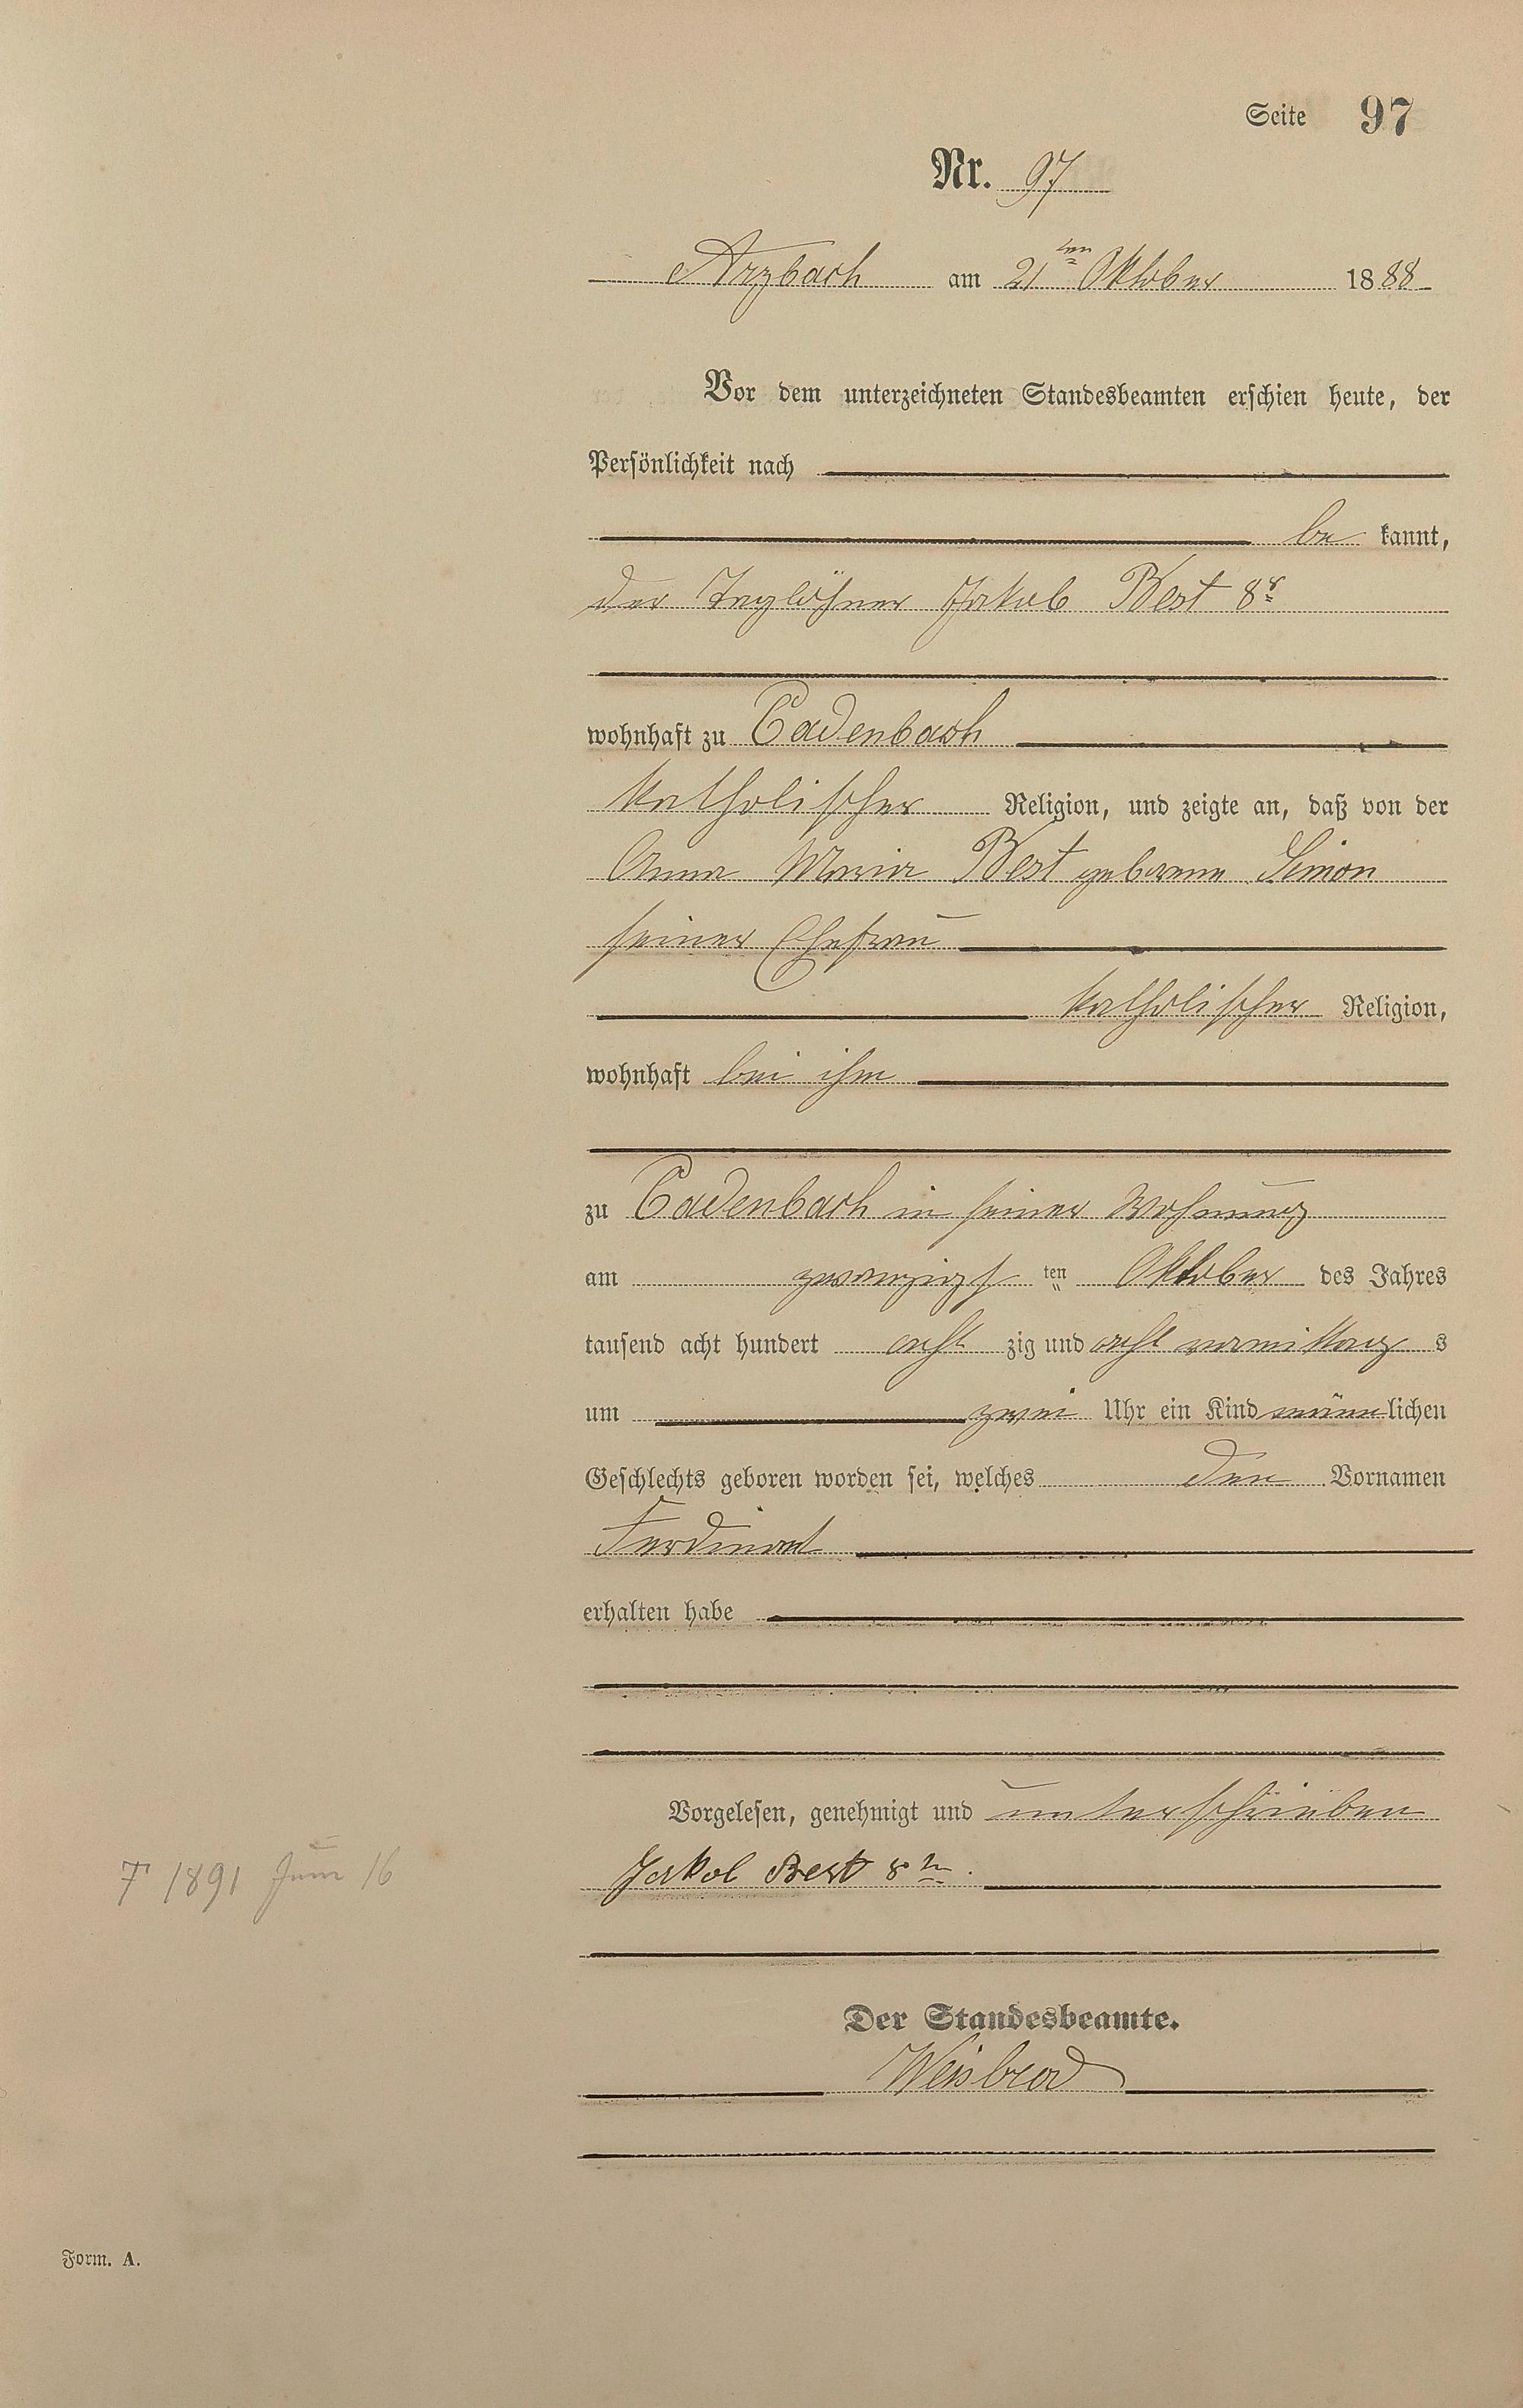 Seite 97
Nr. 97
Arzbach am 21ten Oktober 1888
Vor dem unterzeichneten Standesbeamten erschien heute, der
Persönlichkeit nach
be kannt,
der Taglöhner Jakob Best 8r
wohnhaft zu Cadenbach
katholischer Religion, und zeigte an, daß von der
Anna Maria Best geborene Simon
seiner Ehefrau
katholischer Religion,
wohnhaft bei ihm
zu Cadenbach in seiner Wohnung
am zwanzigsten Oktober des Jahres
tausend acht hundert acht zig und acht vormittags
um zwei Uhr ein Kind männlichen
Geschlechts geboren worden sei, welches den Vornamen
Ferdinand
erhalten habe
Vorgelesen, genehmigt und unterschrieben
Jakob Best 8tr.
† 1891 Juni 16
Der Standesbeamte.
Weisbrod
Form. A.